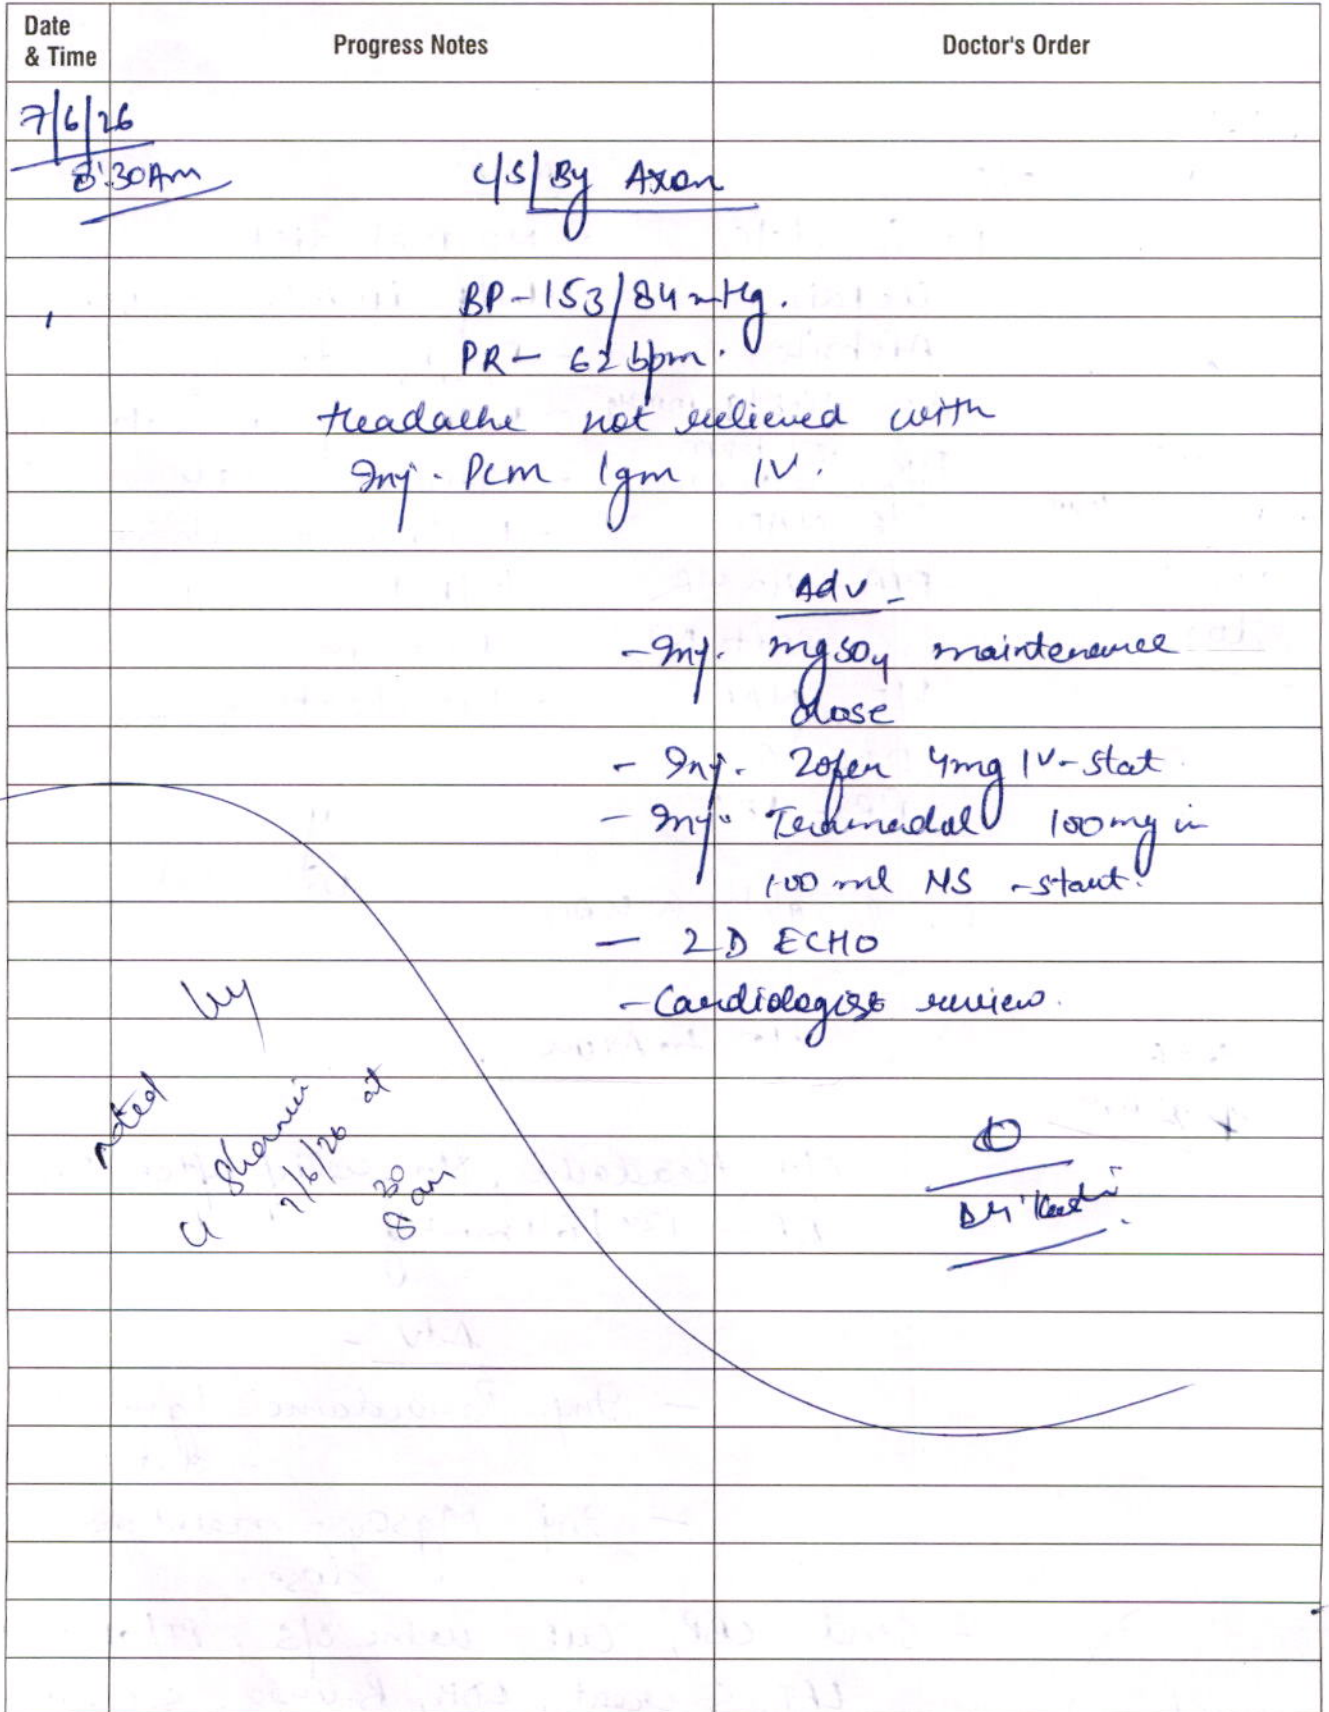 Date & Time
Progress Notes
Doctor's Order
7/6/26
8:30Am
C/S/By Axon
BP-153/84 mHg.
PR- 62 bpm.
Headache not relieved with
Inj. Pcm 1gm IV.
Adv -
- Inj. mgso4 maintenance
dose
- Inj. Zofer 4mg IV-stat
- Inj. Tramadal 100mg in
100 ml NS - start.
- 2D ECHO
- Cardiologist review.
noted by
7/6/26 at
8 30 am